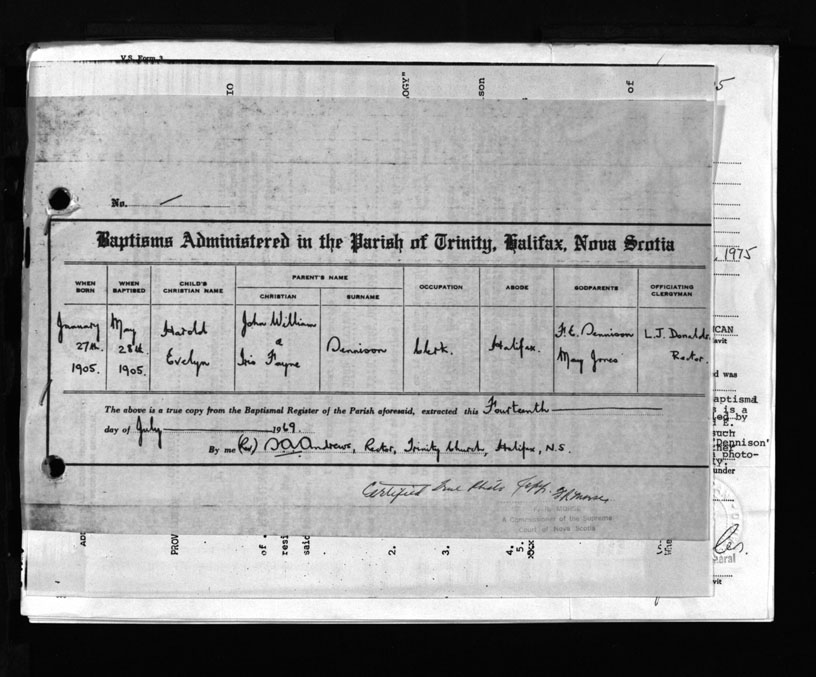 V.S. Form 3
IO
OGY"
son
of
No. —
Baptisms Administered in the Parish of Trinity, Halifax, Nova Scotia
WHEN BORN
WHEN BAPTISED
CHILD'S CHRISTIAN NAME
PARENT'S NAME
CHRISTIAN
SURNAME
OCCUPATION
ABODE
GODPARENTS
OFFICIATING CLERGYMAN
January 27th. 1905.
May 28th. 1905.
Harold Evelyn
John William & Iris Payne
Dennison
Clerk.
Halifax.
F.E. Dennison
May Jones
L.J. Donalds.
Rector.
The above is a true copy from the Baptismal Register of the Parish aforesaid, extracted this Fourteenth
day of July 1969.
By me (Rev) Andrews, Rector, Trinity Church, Halifax, N.S.
Certified True Photo
A Commissioner of the Supreme
Court of Nova Scotia
, 1975
CAN
avit
d was
aptisma
s is a
ed by
E.
such
'Dennison'
photo-
under
PROV
of
resi
said
2.
3.
4.
5.
vit